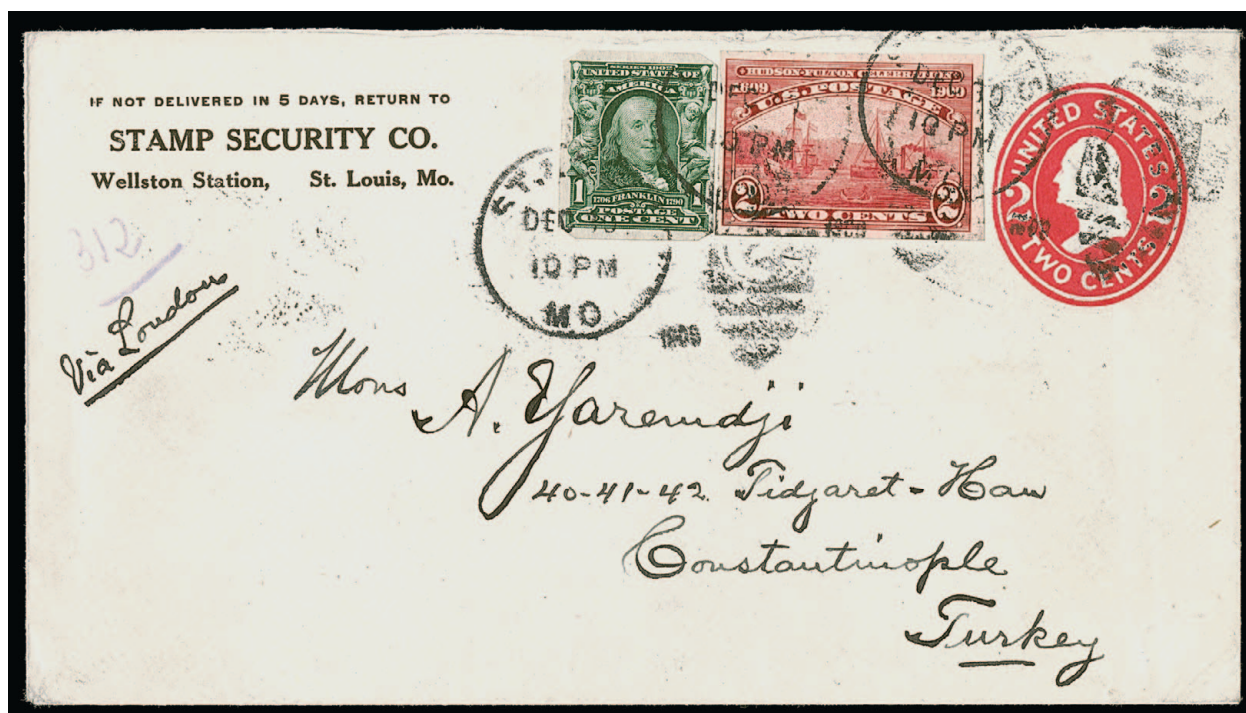 IF NOT DELIVERED IN 5 DAYS, RETURN TO
STAMP SECURITY CO.
Wellston Station, St. Louis, Mo.
312
Via London
SERIES 1902
UNITED STATES OF
AMERICA
1 1
1706 FRANKLIN 1790
POSTAGE
ONE CENT
HUDSON-FULTON CELEBRATION
1609 1909
U.S. POSTAGE
2 2
TWO CENTS
UNITED STATES
2 2
TWO CENTS
DEC
10 PM
MO
1909
10 PM
DEC 10
10 PM
MO
1909
Mons
A. Yaremdji
40-41-42 Tidjaret-Han
Constantinople
Turkey